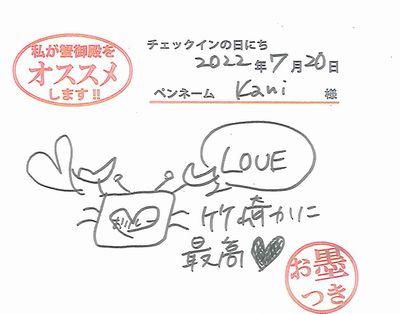 私が蟹御殿を
オススメ
します!!
チェックインの日にち
2022年7月20日
ペンネーム Kani 様
LOVE
竹崎かに
最高♥
お墨
つき